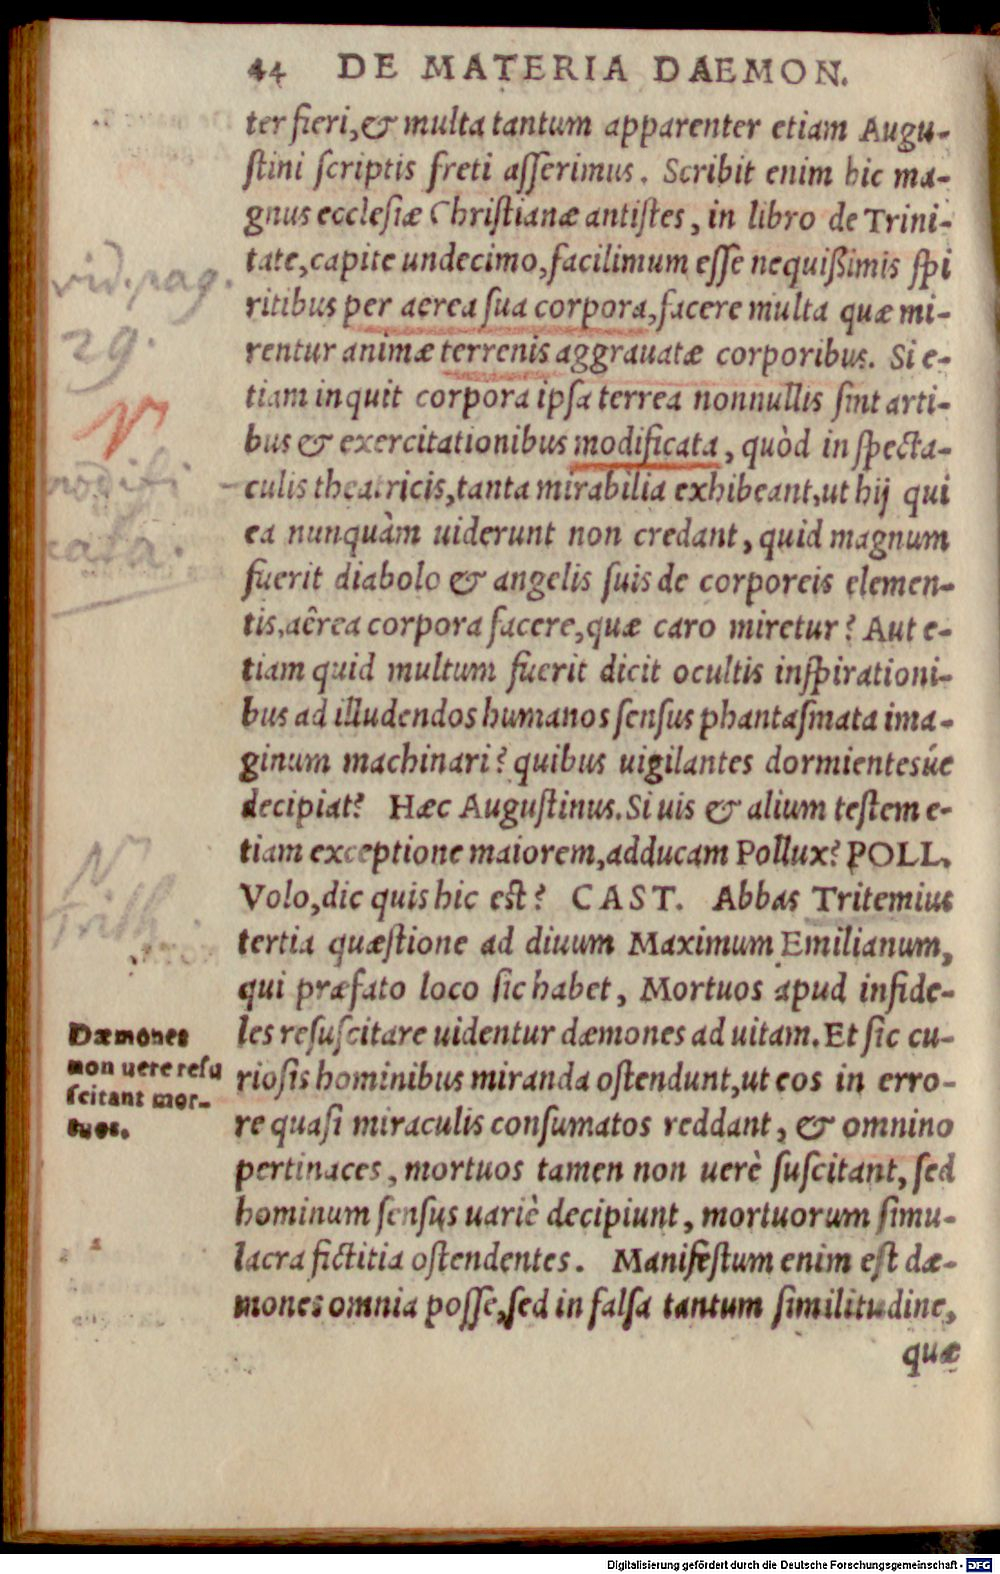 44 DE MATERIA DAEMON.
ter fieri, & multa tantum apparenter etiam Augu-
ſtini ſcriptis freti aſſerimus. Scribit enim hic ma-
gnus eccleſiæ Chriſtianæ antiſtes, in libro de Trini-
tate, capite undecimo, facilimum eſſe nequißimis ſpi
ritibus per aerea ſua corpora, facere multa quæ mi-
rentur animæ terrenis aggrauatæ corporibus. Si e-
tiam inquit corpora ipſa terrea nonnullis ſint arti-
bus & exercitationibus modificata, quòd in ſpecta-
culis theatricis, tanta mirabilia exhibeant, ut hij qui
ea nunquàm uiderunt non credant, quid magnum
fuerit diabolo & angelis ſuis de corporeis elemen-
tis, aêrea corpora facere, quæ caro miretur? Aut e-
tiam quid multum fuerit dicit ocultis inſpirationi-
bus ad illudendos humanos ſenſus phantaſmata ima-
ginum machinari? quibus uigilantes dormientesúe
decipiat? Hæc Auguſtinus. Si uis & alium teſtem e-
tiam exceptione maiorem, adducam Pollux? POLL.
Volo, dic quis hic eſt? CAST. Abbas Tritemius
tertia quæſtione ad diuum Maximum Emilianum,
qui præfato loco ſic habet, Mortuos apud infide-
les reſuſcitare uidentur dæmones ad uitam. Et ſic cu-
rioſis hominibus miranda oſtendunt, ut eos in erro-
re quaſi miraculis conſumatos reddant, & omnino
pertinaces, mortuos tamen non uerè ſuſcitant, ſed
hominum ſenſus uariè decipiunt, mortuorum ſimu-
lacra fictitia oſtendentes. Manifeſtum enim eſt dæ-
mones omnia poſſe, ſed in falſa tantum ſimilitudine,
quæ
vid. pag.
29.
N
modifi
cata.
N.
Trith.
Dæmones
non uere reſu
ſcitant mor-
tuos.
Digitalisierung gefördert durch die Deutsche Forschungsgemeinschaft - DFG